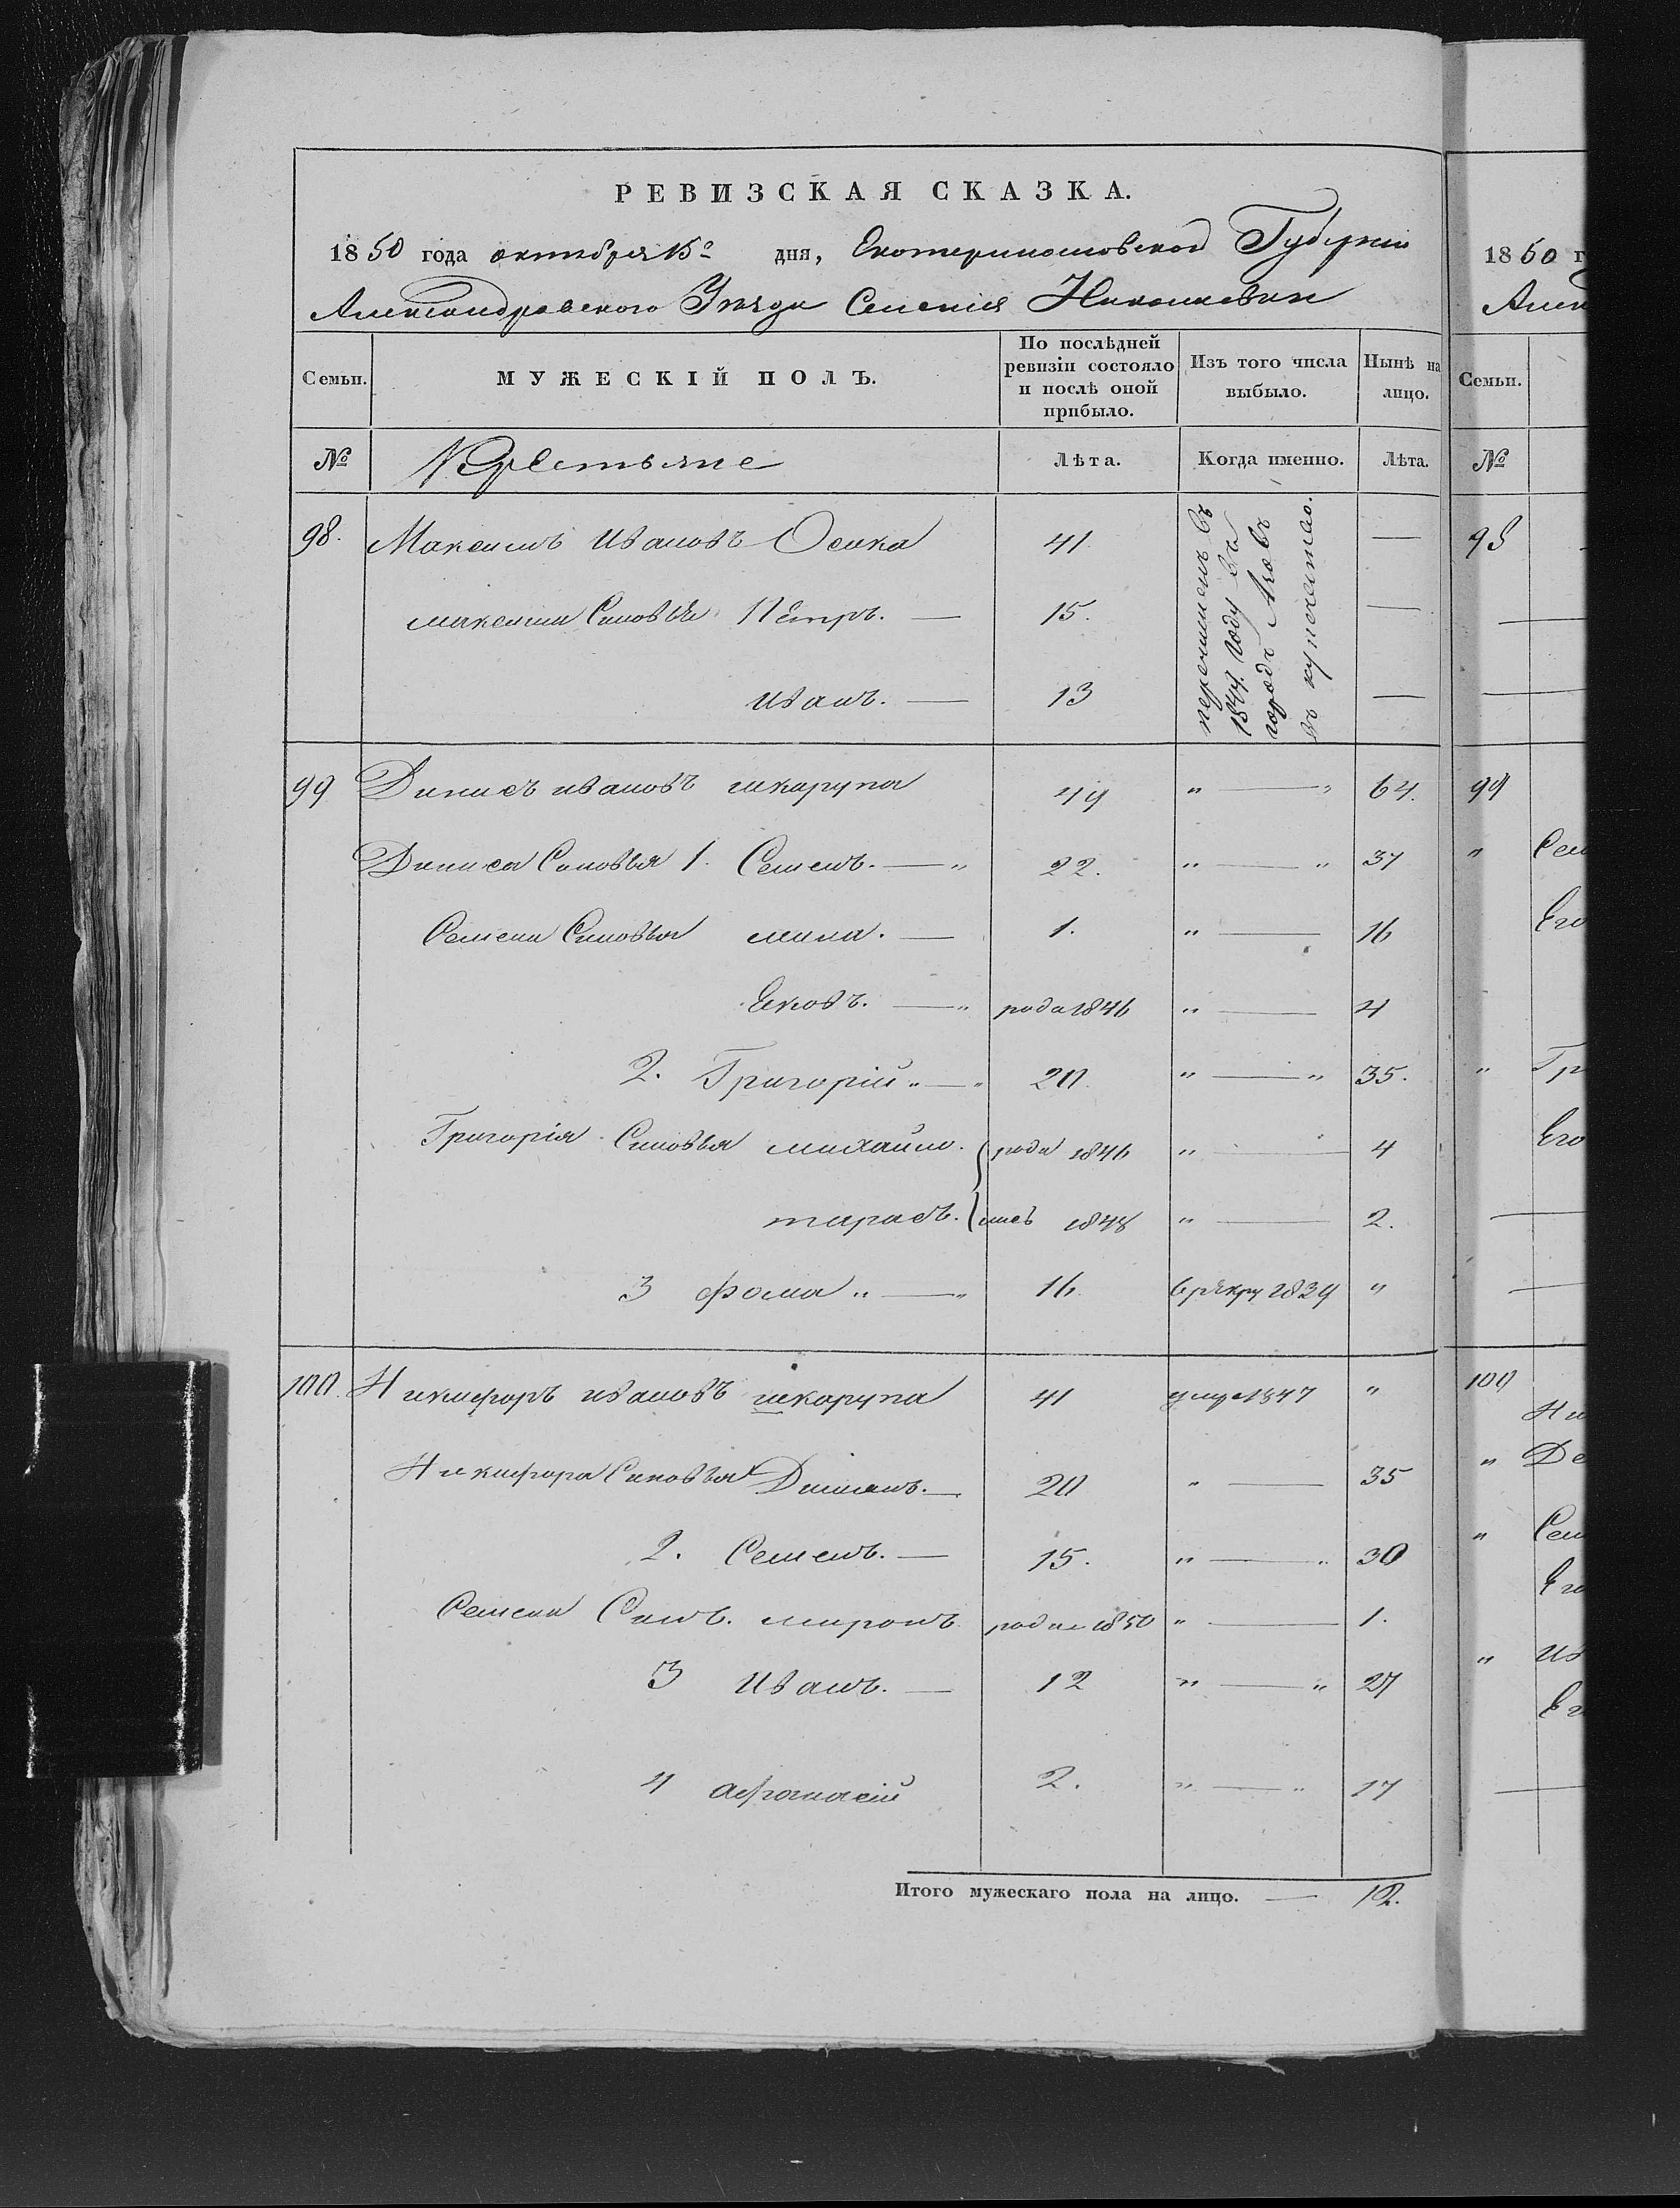 РЕВИЗСКАЯ СКАЗКА.
1850 года октября 15º дня, Екатеринославской Губернии
Александровского Уезда Селения Николаевки
Семьи.
МУЖЕСКІЙ ПОЛЪ.
По послѣдней ревизіи состояло и послѣ оной прибыло.
Изъ того числа выбыло.
Нынѣ на лицо.
№ Крестьяне Лѣта. Когда именно. Лѣта.
98. Максимъ Ивановъ Осика 41 —
перечисленъ въ
1844. году въ
городъ Азовъ
въ купечество.
максима Сыновья Петръ. — 15. —
Иванъ. — 13 —
99 Динисъ ивановъ шкарупа 49 " — " 64.
Диниса Сыновья 1. Семенъ. — " 22. " — " 37
Семена Сыновья мина. — 1. " — 16
Яковъ. — " рода 1846 " — 4
2. Григорій " — " 20. " — " 35.
Григорія Сыновья михайло. рода 1846 " — 4
тарасъ. 1848 " — 2.
3 фома " — " 16. в рекру 1839 "
100. Никифоръ ивановъ шкарупа 41 умре 1847 "
Никифора Сыновья Димянъ. — 20 " — 35
2. Семенъ. — 15. " — " 30
Семена Сынъ. миронъ роди 1850 " — 1.
3 Иванъ. — 12 " — " 27
4 афонасій 2. " — " 17
Итого мужескаго пола на лицо. — 12.
1850 г
Алек
Семьи.
№
98
99
" Сем
Его
" Гр
Его
100
Ни
" Де
" Сем
Его
" Ив
Ег